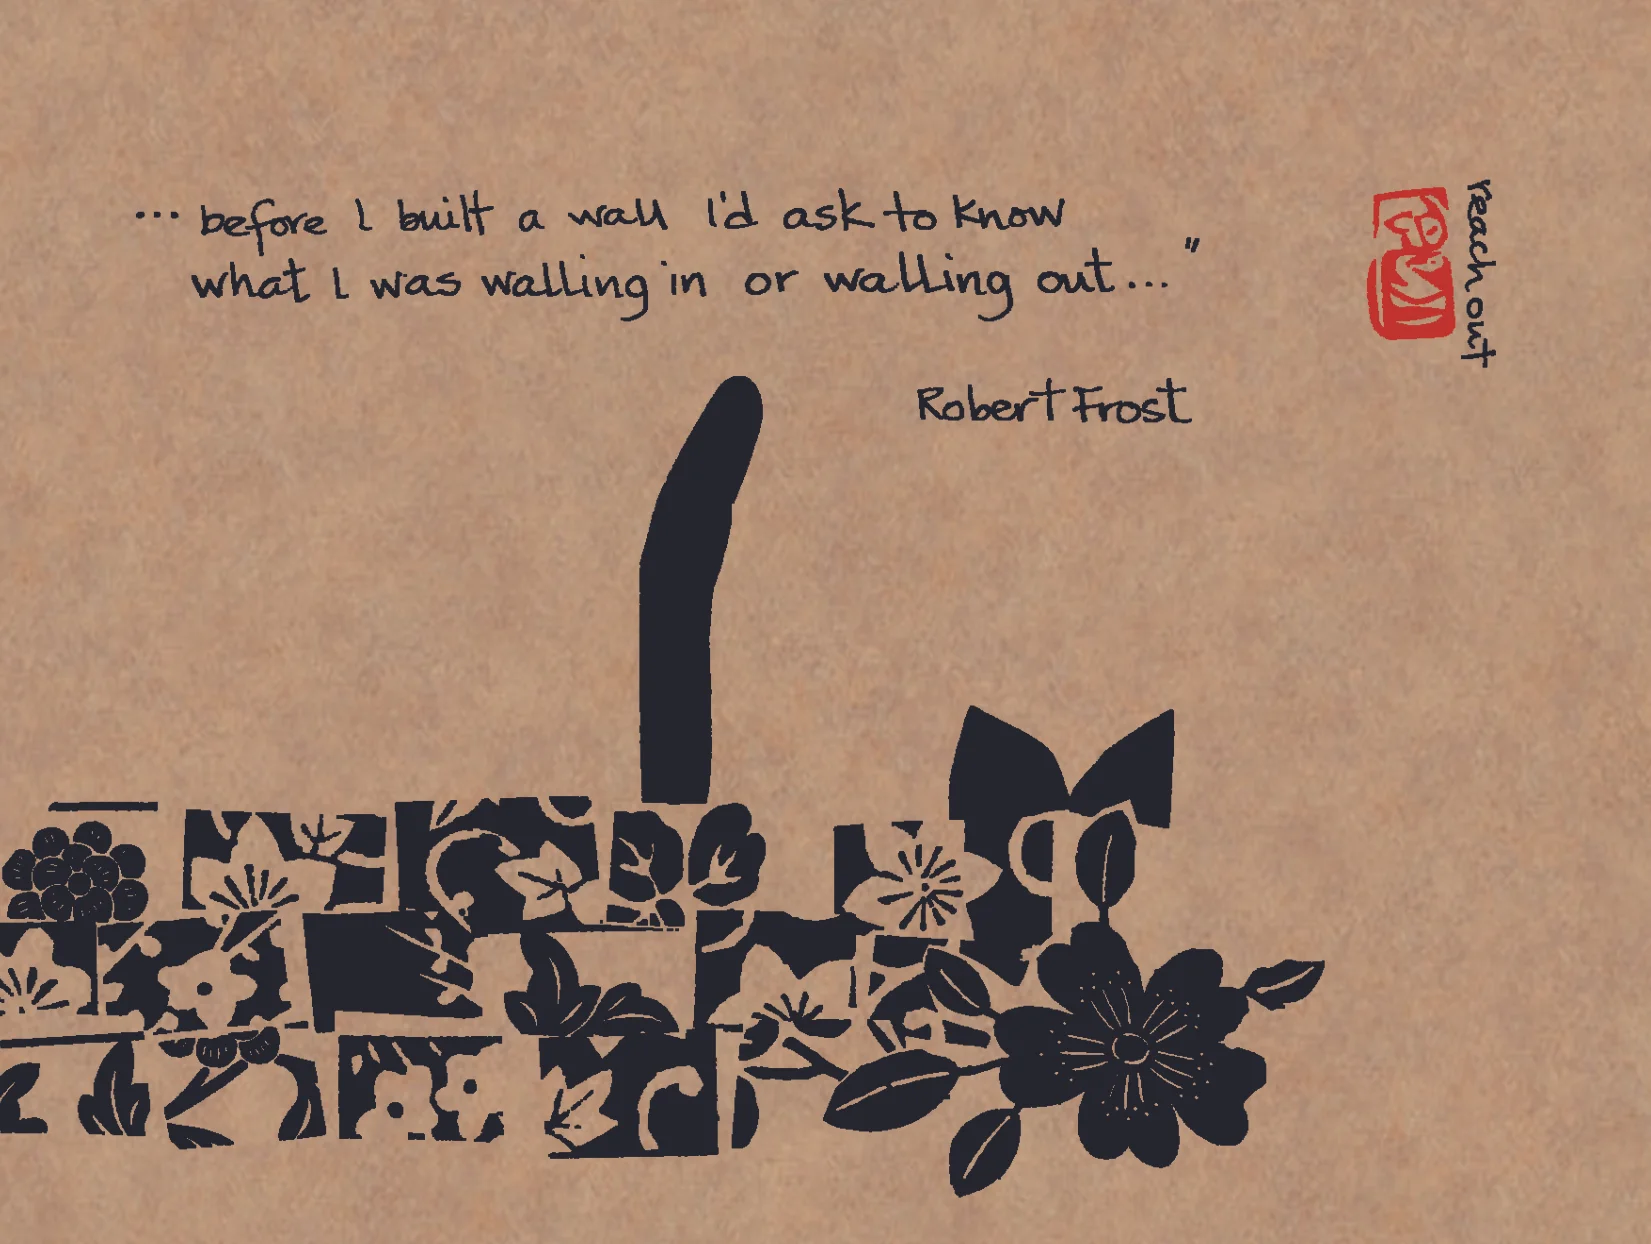 ... before I built a wall I'd ask to know
what I was walling in or walling out..."
Robert Frost
reach out